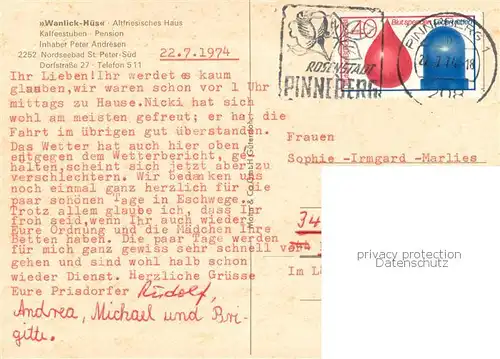 »Wanlick-Hüs« · Altfriesisches Haus
Kaffeestuben · Pension
Inhaber Peter Andresen
2252 Nordseebad St. Peter-Süd
Dorfstraße 27 · Telefon 5 11
22.7.1974
Ihr Lieben!Ihr werdet es kaum
glauben,wir waren schon vor 1 Uhr
mittags zu Hause.Nicki hat sich
wohl am meisten gefreut; er hat die
Fahrt im übrigen gut überstanden.
Das Wetter hat auch hier oben
entgegen dem Wetterbericht, ge
halten,scheint sich jetzt aber zu
verschlechtern. Wir bedanken uns
noch einmal ganz herzlich für die
paar schönen Tage in Eschwege.
Trotz allem glaube ich, dass Ihr
froh seid,wenn Ihr auch wieder
Eure Ordnung und die Mädchen ihre
Betten haben. Die paar Tage werden
für mich ganz gewiss sehr schnell v
gehen und sind wohl halb schon
wieder Dienst. Herzliche Grüsse
Eure Prisdorfer Rudolf,
Andrea, Michael und Bri-
gitte.
ROSENSTADT
PINNEBERG
40
Blut spenden
PINNEBERG 1
208
Frauen
Sophie -Irmgard -Marlies
34
Im L
privacy protection
service